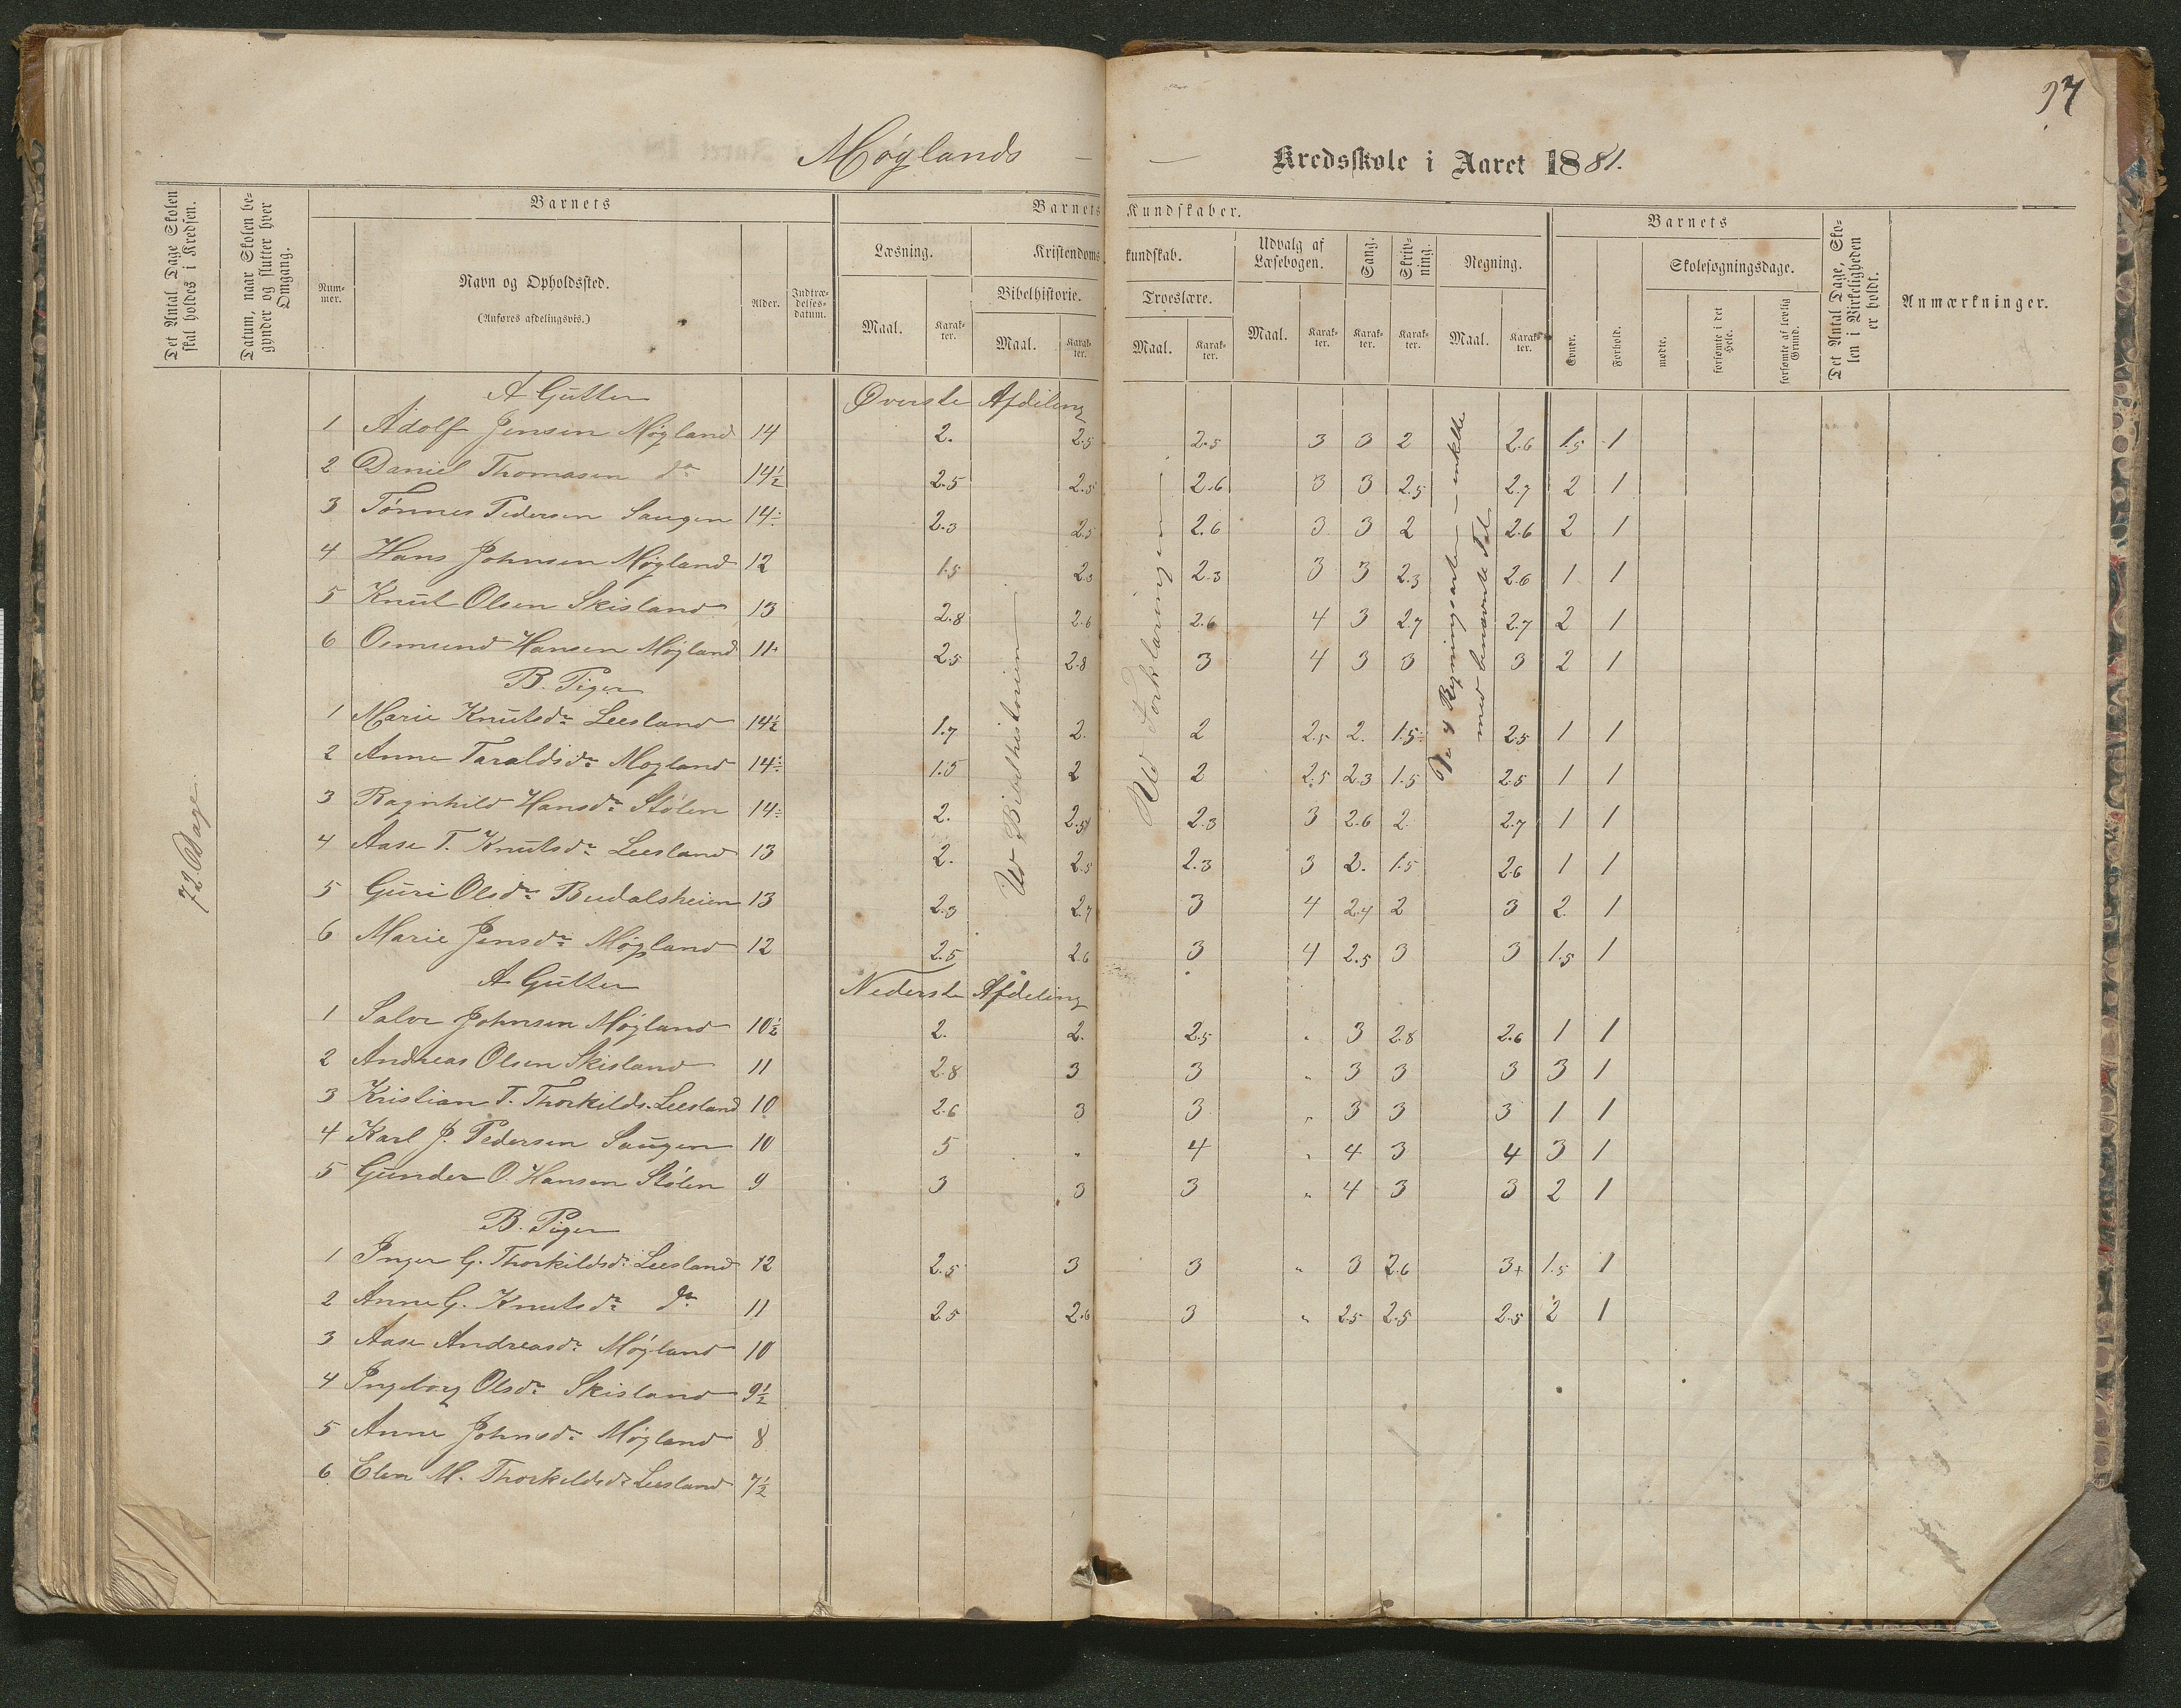 97
Møglands — — Kredsskole i Aaret 1881.
Det Antal Dage Skolen skal holdes i Kredsen.
Datum, naar Skolen begynder og slutter hver Omgang.
Barnets
Nummer.
Navn og Opholdssted.
(Anføres afdelingsvis.)
Alder.
Indtrædelsesdatum.
Barnets Kundskaber.
Læsning.
Maal.
Karakter.
Kristendomskundskab.
Bibelhistorie.
Maal.
Karakter.
Troeslære.
Maal.
Karakter.
Udvalg af Læsebogen.
Maal.
Karakter.
Sang.
Karakter.
Skrivning.
Karakter.
Regning.
Maal.
Karakter.
Barnets
Evner.
Forhold.
Skolesøgningsdage.
mødte.
forsømte i det Hele.
forsømte af lovlig Grund.
Det Antal Dage, Skolen i Virkeligheden er holdt.
Anmærkninger.
72 Dage
A Gutter Øverste Afdeling
1 Adolf Jensen Møgland 14 2. 2.5 2.5 3 3 2 2.6 1.5 1
2 Daniel Thomasen do 14½ 2.5 2.5 2.6 3 3 2.5 2.7 2 1
3 Tønnes Pedersen Saugen 14÷ 2.3 2.5 2.6 3 3 2 2.6 2 1
4 Hans Johnsen Møgland 12 1.5 2.3 2.3 3 3 2.3 2.6 1 1
5 Knut Olsen Skisland 13 2.8 2.6 2.6 4 3 2.7 2.7 2 1
6 Osmund Hansen Møgland 11 2.5 2.8 3 4 3 3 3 2 1
Ud Bibelhistorien
Ud Forklaringen
De 4 Regningsarter – enkelte
med benævnte Tal
B. Piger
1 Marie Knutsdr Leesland 14½ 1.7 2. 2 2.5 2. 1.5÷ 2.5 1 1
2 Anne Taraldsdr Møgland 14÷ 1.5 2 2 2.5 2.3 1.5 2.5 1 1
3 Ragnhild Hansdr Stølen 14÷ 2. 2.5 2.3 3 2.6 2 2.7 1 1
4 Aase T. Knutsdr Leesland 13 2. 2.5 2.3 3 2. 1.5 2.6 1 1
5 Guri Olsdr Budalsheien 13 2.3 2.7 3 4 2.4 2 3 2 1
6 Marie Jensdr Møgland 12 2.5 2.6 3 4 2.5 3 3 1.5 1
A Gutter Nederste Afdeling
1 Salve Johnsen Møgland 10½ 2. 2. 2.5 " 3 2.8 2.6 1 1
2 Andreas Olsen Skisland 11 2.8 3 3 " 3 3 3 3 1
3 Kristian T. Thorkilds. Leesland 10 2.6 3 3 " 3 3 3 1 1
4 Karl J. Pedersen Saugen 10 5 " 4 " 4 3 4 3 1
5 Gunder O. Hansen Stølen 9 3 3 3 " 4 3 3 2 1
B. Piger
1 Inger G. Thorkildsdr Leesland 12 2.5 3 3 " 3 2.6 3+ 1.5 1
2 Anne G. Knutsdr do 11 2.5 2.6 3 " 2.5 2.5 2.5 2 1
3 Aase Andreasdr Møgland 10
4 Ingeborg Olsdr Skisland 9½
5 Anne Johnsdr Møgland 8
6 Elen M. Thorkildsdr Leesland 7½